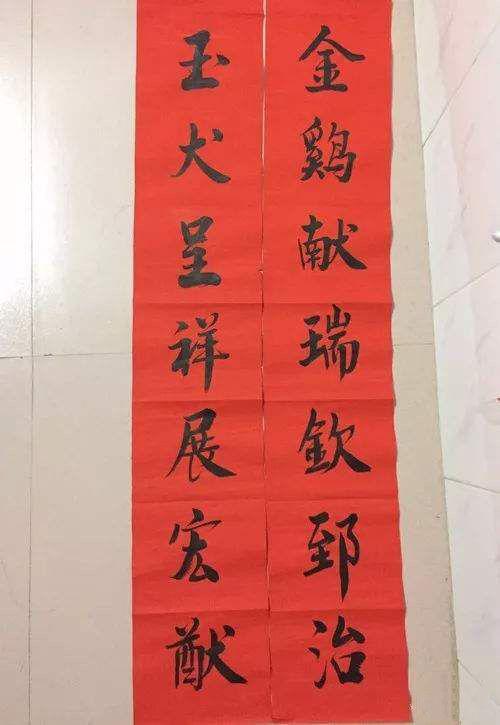 金鷄献瑞欽郅治
玉犬呈祥展宏猷